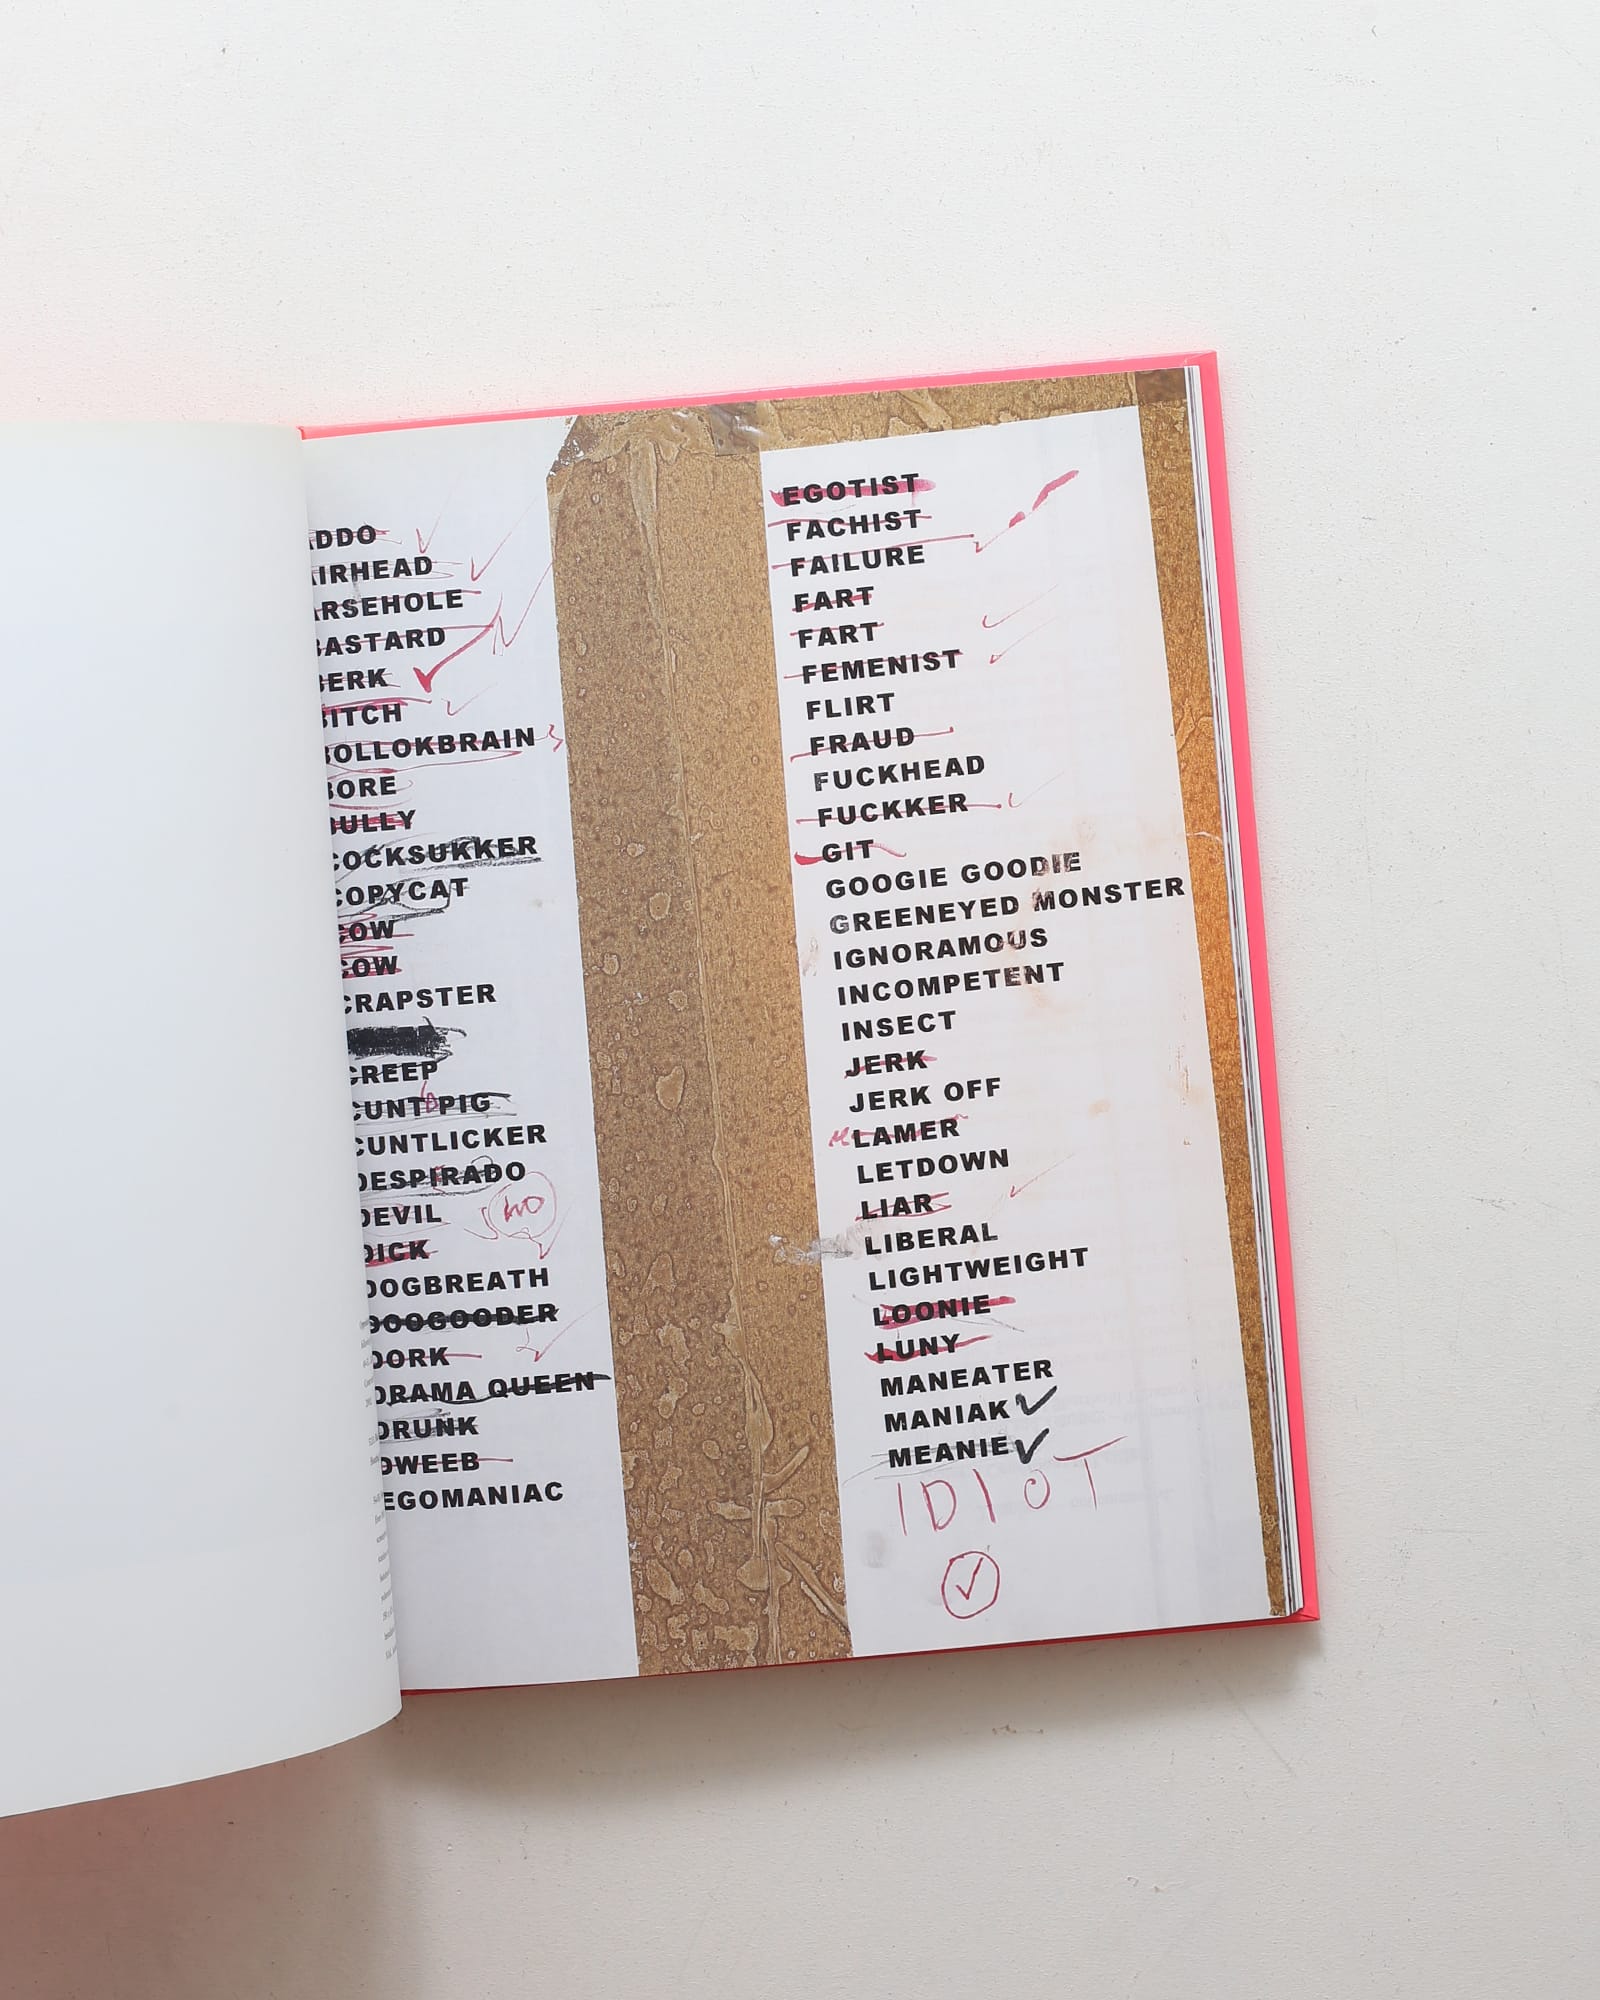 ADDO
AIRHEAD
ARSEHOLE
BASTARD
BERK
BITCH
BOLLOKBRAIN
BORE
BULLY
COCKSUKKER
COPYCAT
COW
COW
CRAPSTER
CREEP
CUNT PIG
CUNTLICKER
DESPIRADO
DEVIL
NO
DICK
DOGBREATH
DOOGOODER
DORK
DRAMA QUEEN
DRUNK
DWEEB
EGOMANIAC
EGOTIST
FACHIST
FAILURE
FART
FART
FEMENIST
FLIRT
FRAUD
FUCKHEAD
FUCKKER
GIT
GOOGIE GOODIE
GREENEYED MONSTER
IGNORAMOUS
INCOMPETENT
INSECT
JERK
JERK OFF
LAMER
LETDOWN
LIAR
LIBERAL
LIGHTWEIGHT
LOONIE
LUNY
MANEATER
MANIAK
MEANIE
IDIOT